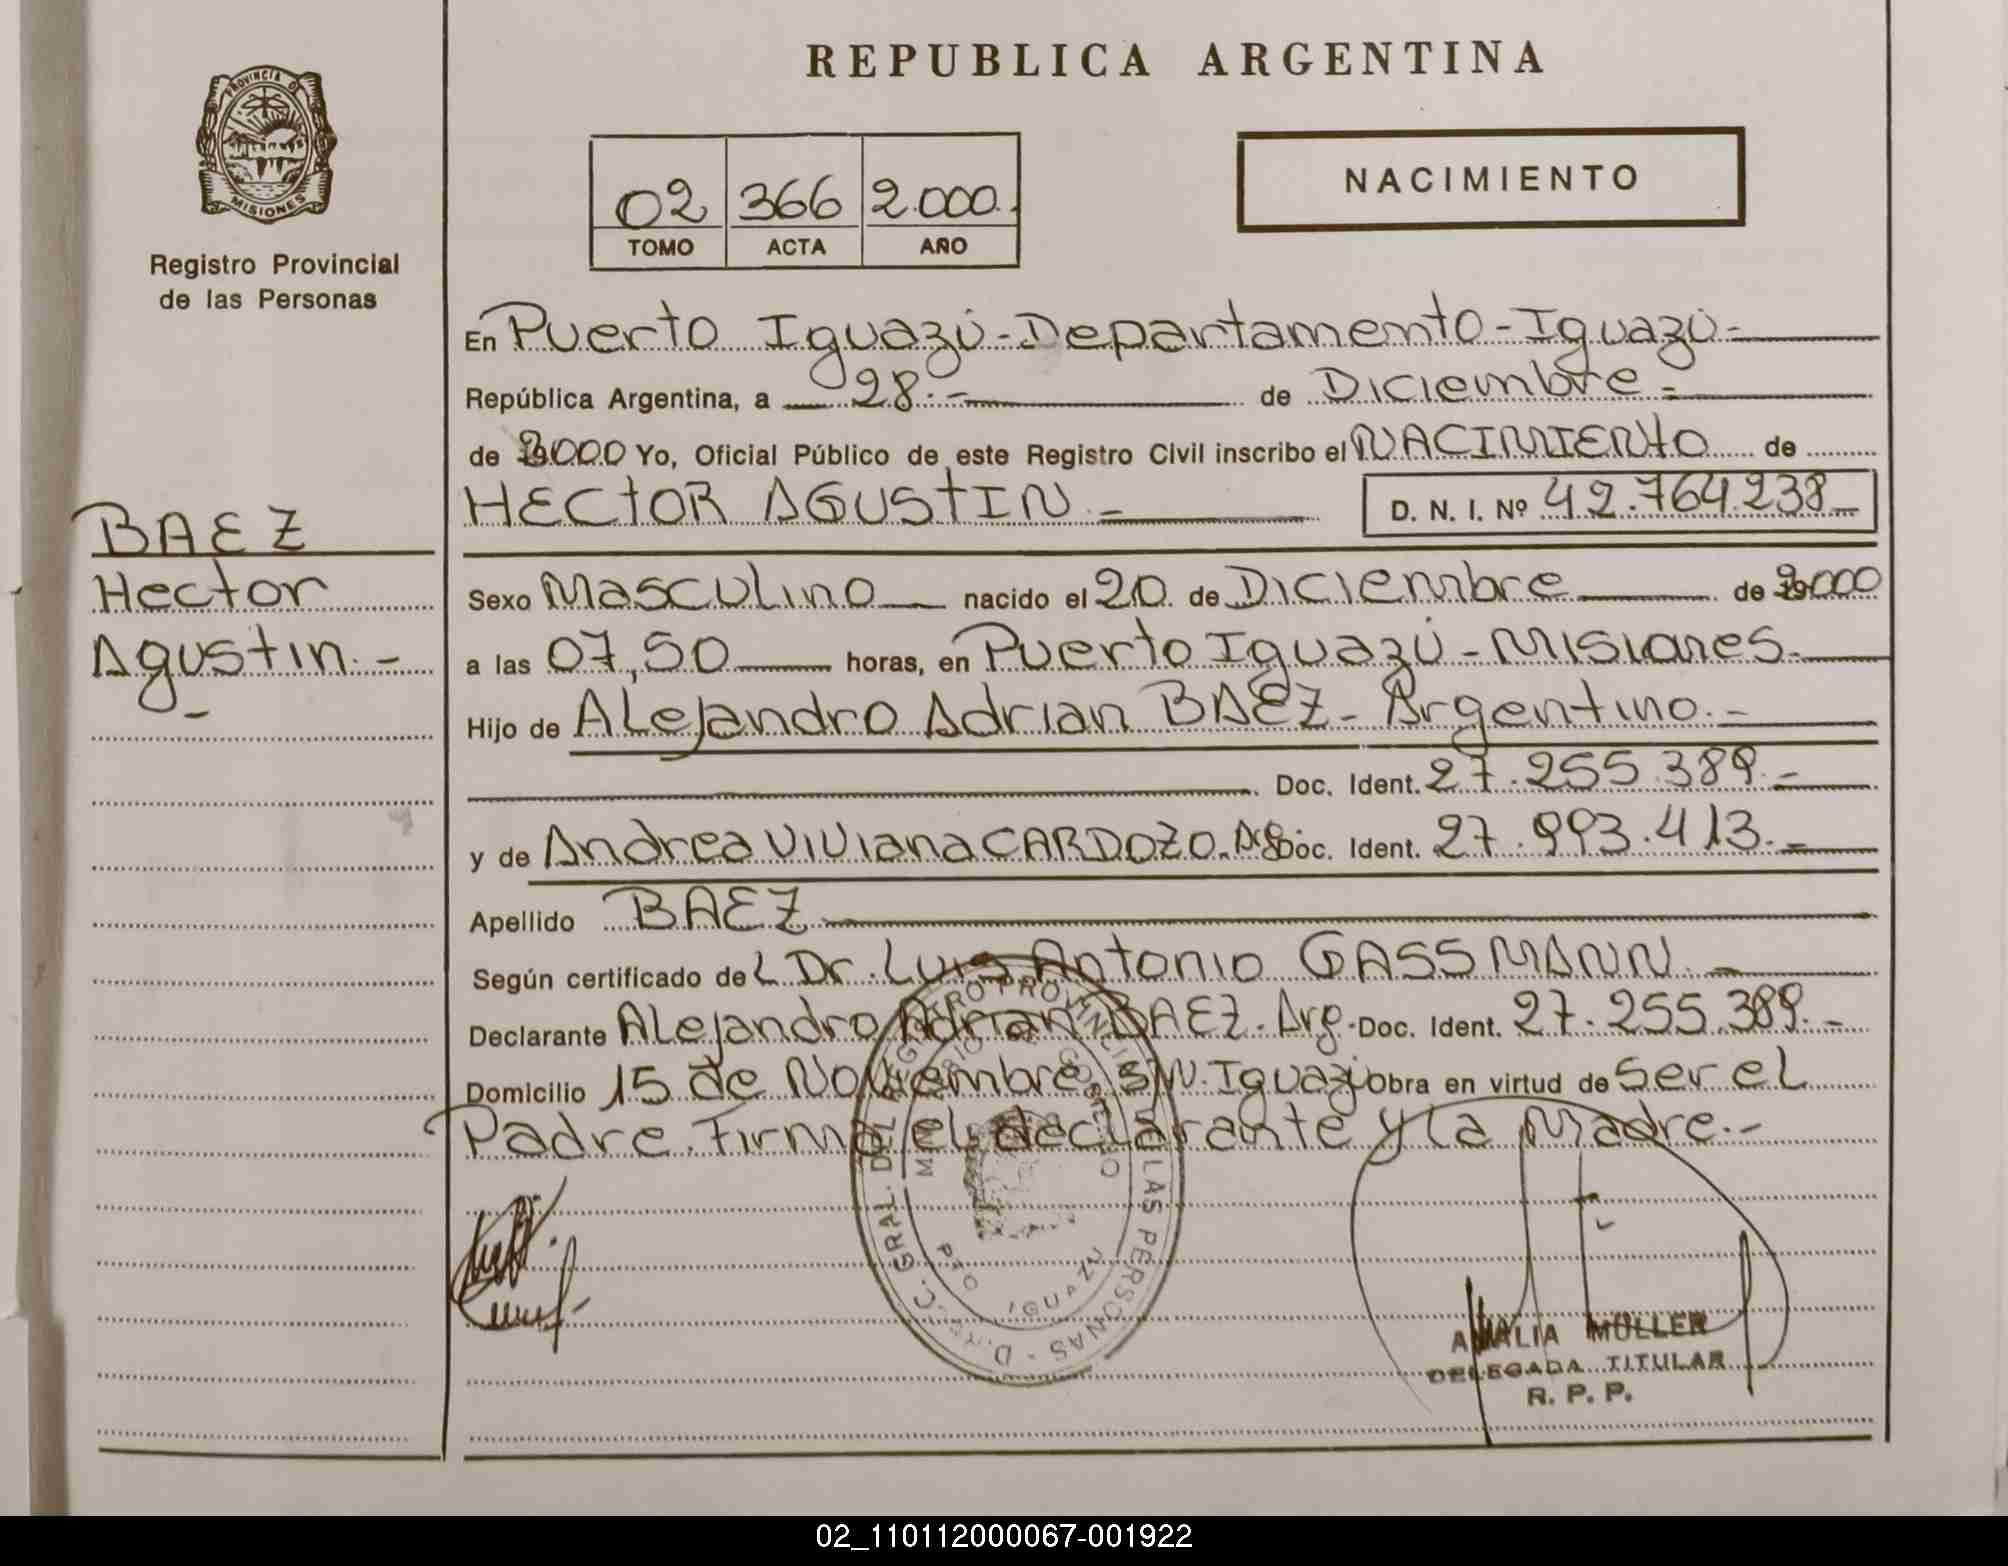 REPUBLICA ARGENTINA
PROVINCIA DE
MISIONES
Registro Provincial
de las Personas
02 366 2.000.
TOMO ACTA AÑO
NACIMIENTO
En Puerto Iguazú-Departamento-Iguazú-
República Argentina, a 28.- de Diciembre-
de 2.000 Yo, Oficial Público de este Registro Civil inscribo el NACIMIENTO de
HECTOR AGUSTIN.- D. N. I. Nº 42.764.238
BAEZ
Hector
Agustin.-
Sexo Masculino nacido el 20 de Diciembre de 2000
a las 07,50 horas, en Puerto Iguazú-Misiones.
Hijo de Alejandro Adrian BAEZ- Argentino.-
Doc. Ident. 27.255.389.-
y de Andrea Viviana CARDOZO. Arg Doc. Ident. 27.993.413.-
Apellido BAEZ
Según certificado del Dr. Luis Antonio GASSMANN.-
Declarante Alejandro Adrian BAEZ. Arg. Doc. Ident. 27.255.389.-
Domicilio 15 de Noviembre S/N. Iguazú obra en virtud de ser el
Padre. Firma el declarante y la Madre.-
D. C. GRAL. DEL REGISTRO PROVINCIAL DE LAS PERSONAS
PTO IGUAZU
AMALIA MULLER
DELEGADA TITULAR
R. P. P.
02_110112000067-001922